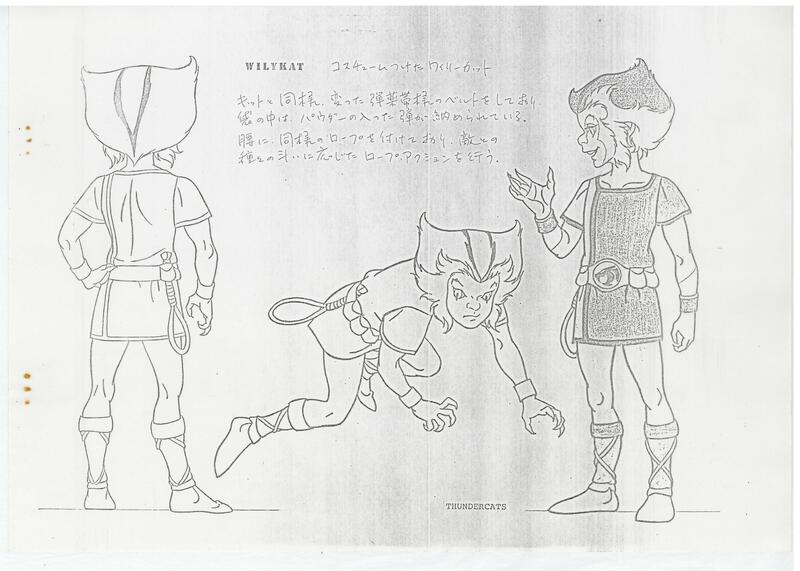 WILYKAT コスチュームつけたワイリーカット
キットと同様、変った弾薬帯様のベルトをしており
袋の中は、パウダーの入った弾が納められている。
腰に、同様のロープを付けており、敵との
種々の斗いに応じたロープアクションを行う。
THUNDERCATS